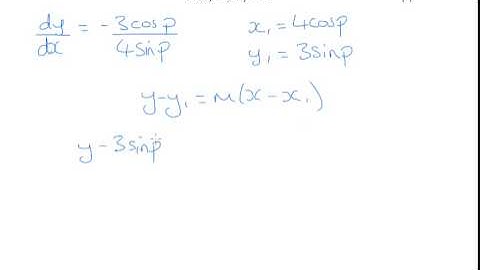 dy/dx = -3cosp/4sinp    x₁ = 4cosp
y₁ = 3sinp
y-y₁ = m(x - x₁)
y - 3sinp